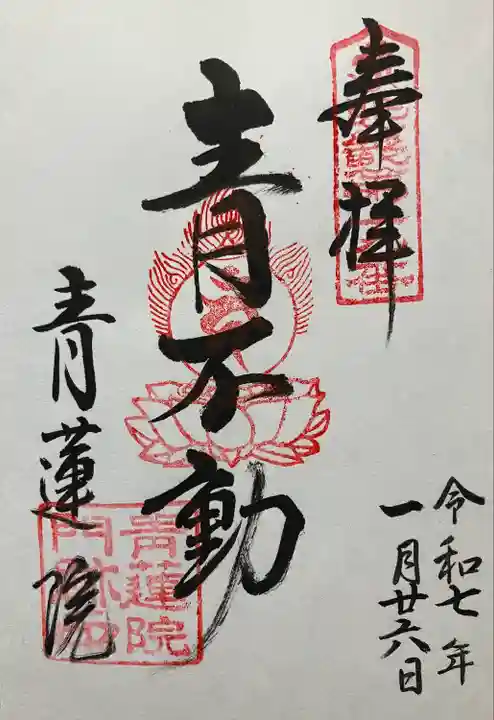 奉拝
青不動
青蓮院
青蓮院
門跡印
令和七年
一月廿六日